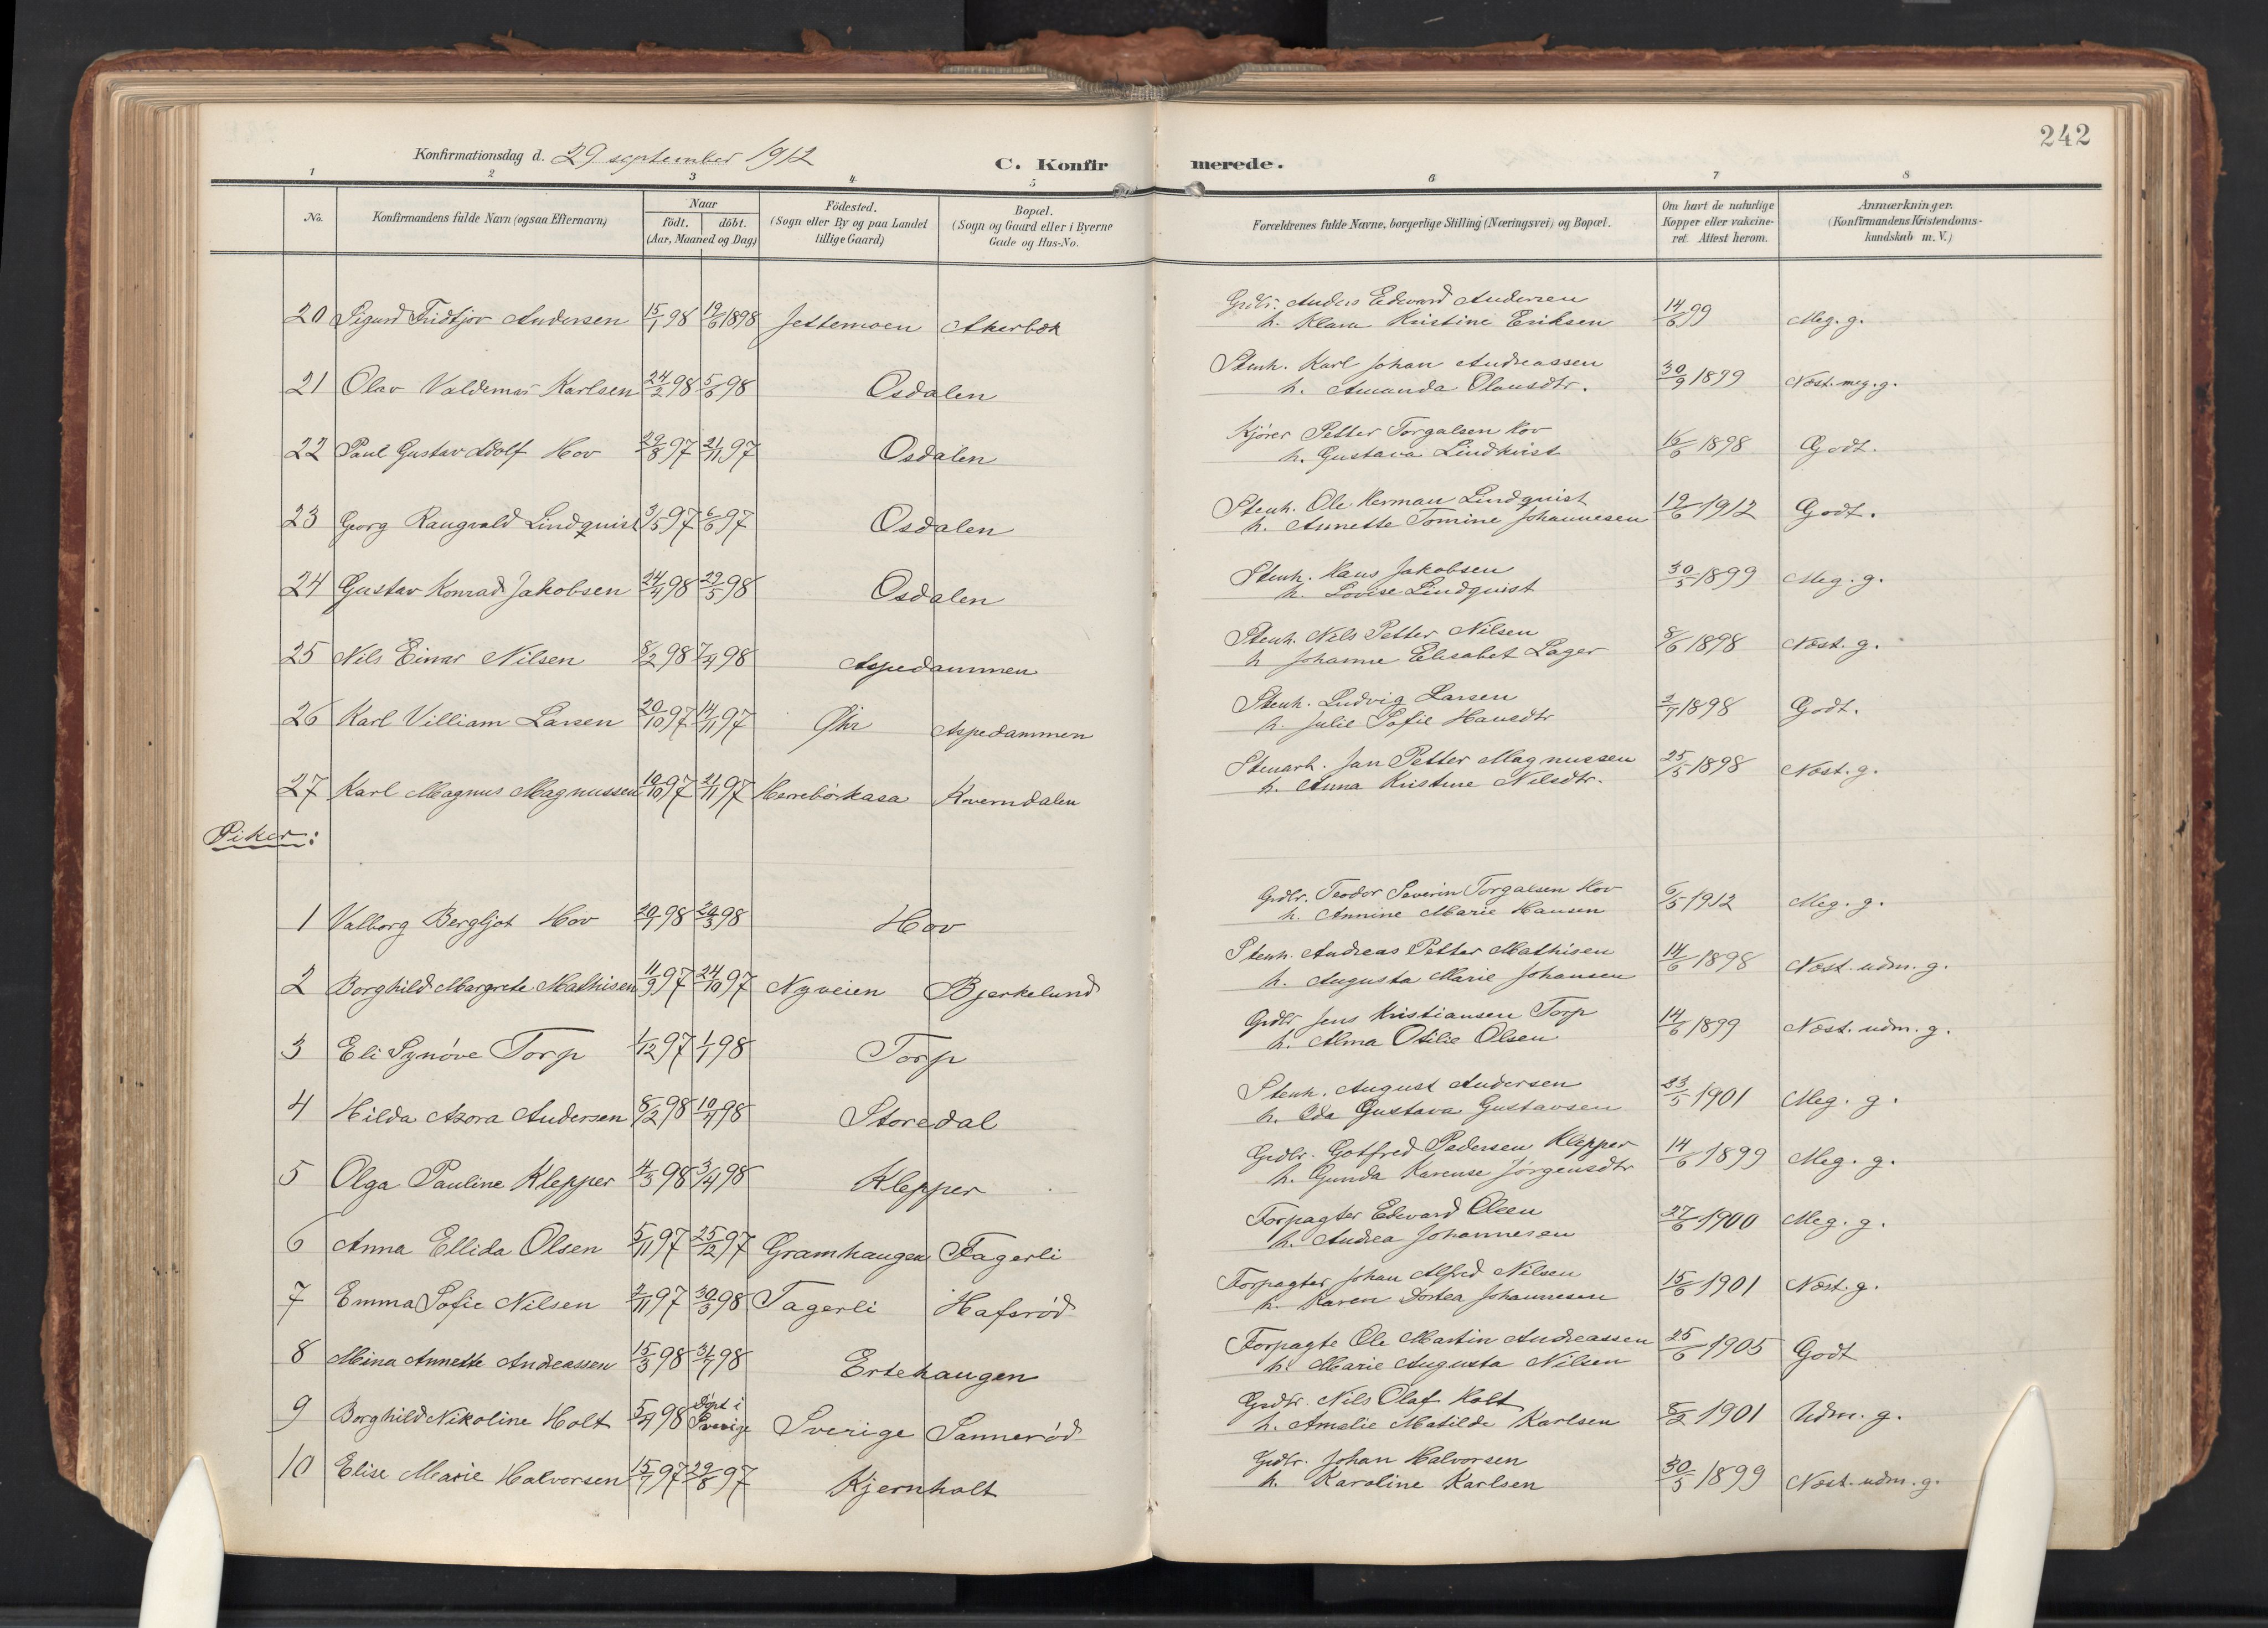 242
Konfirmationsdag d. 29 september 1912
C. Konfirmerede.
1 2 3 4 5 6 7 8
No. | Konfirmandens fulde Navn (ogsaa Efternavn) | Naar födt. döbt. (Aar, Maaned og Dag) | Födested. (Sogn eller By og paa Landet tillige Gaard) | Bopæl. (Sogn og Gaard eller i Byerne Gade og Hus-No. | Forældrenes fulde Navne, borgerlige Stilling (Næringsvei) og Bopæl. | Om havt de naturlige Kopper eller vakcineret. Attest herom. | Anmærkninger. (Konfirmandens Kristendomskundskab m. V.)
20 Sigurd Fridtjov Andersen 15/1 98 19/6 1898 Jettemoen Akerbæk Grdbr. Anders Edvard Andersen
h. Klara Kristine Eriksen 14/6 99 Meg. g.
21 Olav Valdemar Karlsen 24/2 98 5/6 98 Osdalen Stenh. Karl Johan Andreassen
h. Amanda Olausdtr. 30/9 1899 Næst. meg. g.
22 Paul Gustav Adolf Hov 29/8 97 21/11 97 Osdalen Kjører Petter Torgalsen Hov
h. Gustava Lindkvist 16/6 1898 Godt.
23 Georg Rangvald Lindquist 3/5 97 6/6 97 Osdalen Stenh. Ole Herman Lindquist
h. Annette Tomine Johannesen 19/6 1912 Godt.
24 Gustav Konrad Jakobsen 24/4 98 29/5 98 Osdalen Stenh. Hans Jakobsen
h. Lovise Lindquist 30/5 1899 Meg. g.
25 Nils Einar Nilsen 8/2 98 7/4 98 Aspedammen Stenh. Nils Petter Nilsen
h Johanne Elisabet Lager 8/6 1898 Næst. g.
26 Karl Villiam Larsen 20/10 97 14/11 97 Øhr Aspedammen Stenh. Ludvig Larsen
h. Julie Sofie Hansdtr 2/7 1898 Godt.
27 Karl Magnus Magnussen 19/10 97 21/11 97 Herrebørkasa Kverndalen Stenarb. Jan Petter Magnussen
h. Anna Kristine Nilsdtr. 25/5 1898 Næst. g.
Piker:
1 Valborg Bergljot Hov 20/1 98 20/3 98 Hov Grdbr. Teodor Severin Torgalsen Hov
h. Annine Marie Hansen 6/5 1912 Meg. g.
2 Borghild Margrete Mathisen 11/9 97 24/10 97 Nyveien Bjerkelund Stenh. Andreas Petter Mathisen
h. Augusta Marie Johansen 14/6 1898 Næst. udm. g.
3 Eli Synøve Torp 1/12 97 1/1 98 Torp Grdbr Jens Kristiansen Torp
h. Alma Otilie Olsen 14/6 1899 Næst. udm. g.
4 Hilda Azora Andersen 8/2 98 10/4 98 Storedal Stenh. August Andersen
h. Ida Gustava Gustavsen 23/5 1901 Meg. g.
5 Olga Pauline Klepper 4/3 98 3/4 98 Klepper Grdbr. Gotfred Pedersen Klepper
h. Gunda Karense Jørgensdtr 14/6 1899 Meg. g.
6 Anna Ellida Olsen 5/11 97 25/12 97 Gramhaugen Fagerli Forpagter Edvard Olsen
h. Andrea Johannesen 27/6 1900 Meg. g.
7 Emma Sofie Nilsen 2/11 97 30/3 98 Fagerli Hafsrød Forpagter Johan Alfred Nilsen
h. Karen Dortea Johannesen 15/6 1901 Næst. g.
8 Mina Annette Andreassen 15/3 98 31/7 98 Ertehaugen Forpagte Ole Martin Andreassen
h. Marie Augusta Nilsen 25/6 1905 Godt
9 Borghild Nikoline Holt 5/4 98 Døpt i Sverige Sverige Sannerød Grdbr. Nils Olaf Holt
h. Amalie Matilde Karlsen 8/2 1901 Udm. g.
10 Elise Marie Halvorsen 15/7 97 29/8 97 Kjernholt Grdbr. Johan Halvorsen
h. Karoline Karlsen 30/5 1899 Næst. udm. g.